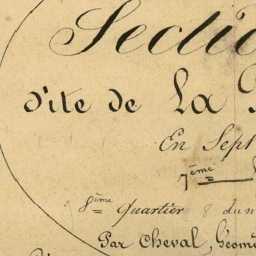 Sectio
dite de La
En Sept
7ème
8ème Quartier 8 du m
Par Cheval, Géom